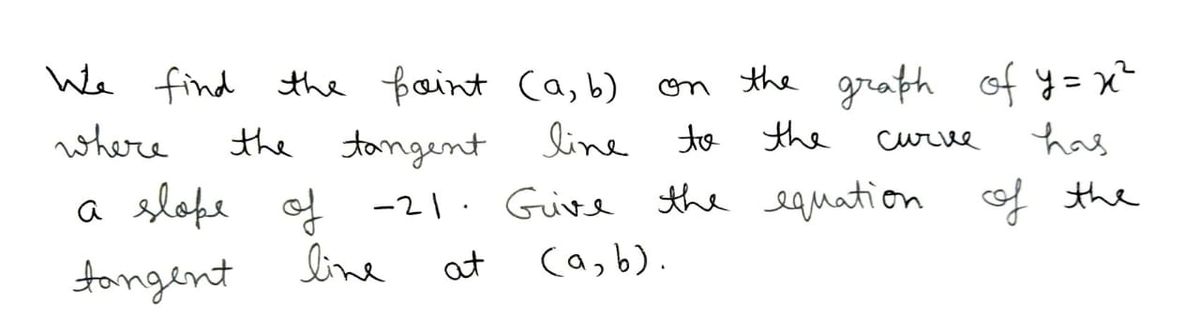 We find the point (a, b) on the graph of y = x²
where the tangent line to the curve has
a slope of -21. Give the equation of the
tangent line at (a, b).